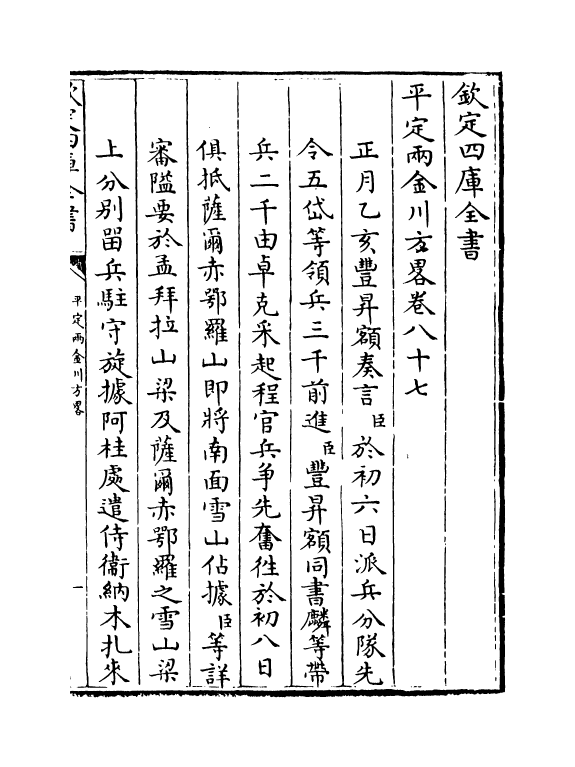 欽定四庫全書
平定兩金川方畧卷八十七
正月乙亥豐昇額奏言臣於初六日派兵分隊先
令五岱等領兵三千前進臣豐昇額同書麟等帶
兵二千由卓克采起程官兵爭先奮徃於初八日
俱抵薩爾赤鄂羅山即將南面雪山佔據臣等詳
審隘要於孟拜拉山梁及薩爾赤鄂羅之雪山梁
上分別留兵駐守旋據阿桂處遣侍衞納木扎來
欽定四庫全書
平定兩金川方畧
一